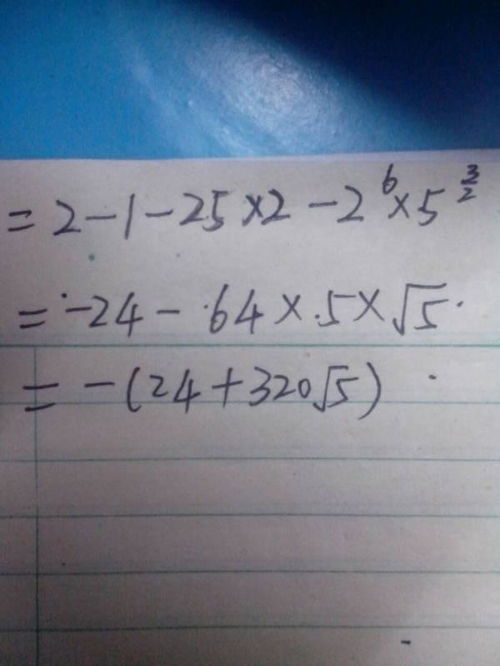 = 2 - 1 - 25 × 2 - 2^6 × 5^{3/2}
= -24 - 64 × 5 × √5
= -(24 + 320√5)